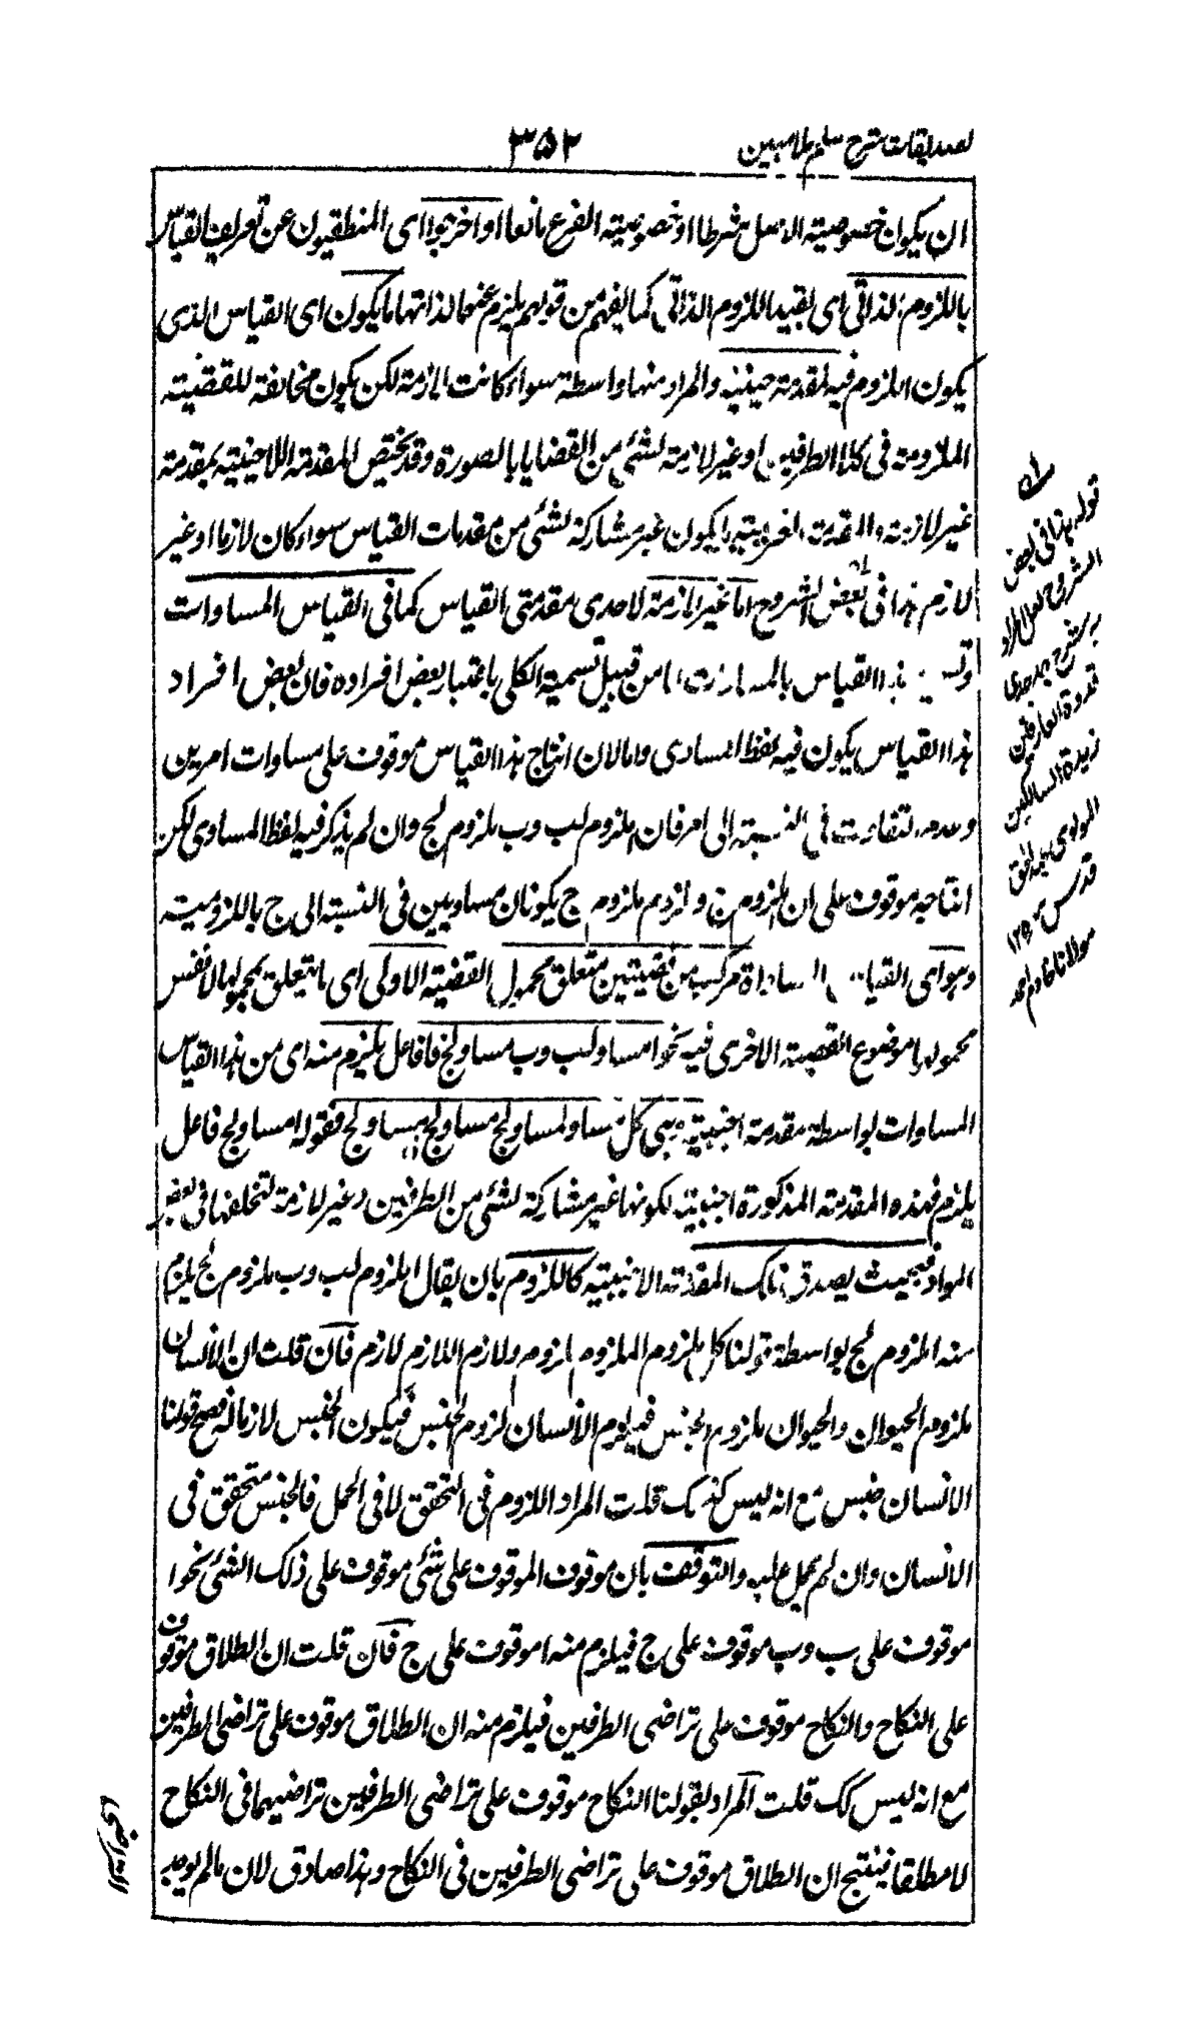 تصدیقات شرح سلم ملا مبین
۳۵۲
ان یکون خصوصیته الاصل شرطا او خصوصیته الفرع مانعا او اخرجوا ای المنطقیون عن تعریف القیاس
باللزوم الذاتی ای بقید اللزوم الذاتی کما یفهم من قولهم یلزم عنها لذاتها ما یکون ای القیاس الذی
یکون اللزوم فیه لمقدمة اجنبیة والمراد منها واسطة سواء کانت لازمة لکن یکون مخالفة للقضیته
الملزومة فی کلا الطرفین او غیر لازمته لشئ من القضایا بالصورة وقد یختص المقدمته الاجنبیته بمقدمته
غیر لازمته والمقدمته الغریبته ما یکون غیر مشارکة لشئ من مقدمات القیاس سواء کان لازما او غیر
لازم هذا فی بعض الشروح اما غیر لازمة لاحدی مقدمتی القیاس کما فی القیاس المساوات
هذا القیاس بالمساوات اما من قبیل تسمیة الکلی باعتبار بعض افراده فان بعض افراد
هذا القیاس یکون فیه لفظ المساوی واما لان انتاج هذا القیاس موقوف علی مساوات امرین
وعدم التفاوت فی النسبته الی امر فان ا ملزوم لب وب ملزوم لج وان لم یذکر فیه لفظ المساوی لکن
انتاجه موقوف علی ان ملزوم ج وملزوم ملزوم ج یکونان مساویین فی النسبته الی ج باللزومیته
وهو ای القیاس المساواة مرکب من قضیتین متعلق محمول القضیته الاولی ای ما یتعلق بمحمولها لا نفس
محمولها موضوع القضیته الاخری فیه نحو ا مساو لب وب مساو لج فا فاعل یلزم منه ای من هذا القیاس
المساوات بواسطة مقدمة اجنبیته وهی کل مساو لمساو لج مساو لج ا مساو لج فقوله ا مساو لج فاعل
یلزم فهذه المقدمته المذکورة اجنبیته لکونها غیر مشارکة لشئ من الطرفین وغیر لازمة لتخلفها فی بعض
المواد فبحیث یصدق تلک المقدمته الاجنبیته کاللزوم بان یقال ا ملزوم لب وب ملزوم لج یلزم
منه ا ملزوم لج بواسطة قولنا کل ملزوم الملزوم ملزوم ولازم اللازم لازم فان قلت ان الانسان
ملزوم الحیوان والحیوان ملزوم الجنس فملزوم الانسان ملزوم الجنس فیکون الجنس لازما له فصح قولنا
الانسان جنس مع انه لیس کذلک قلت المراد اللزوم فی التحقق لا فی الحمل فالجنس متحقق فی
الانسان وان لم یحمل علیه والتوقف بان موقوف الموقوف علی شئ موقوف علی ذلک الشئ نحو ا
موقوف علی ب وب موقوف علی ج فیلزم منه ا موقوف علی ج فان قلت ان الطلاق موقوف
علی النکاح والنکاح موقوف علی تراضی الطرفین فیلزم منه ان الطلاق موقوف علی تراضی الطرفین
مع انه لیس کک قلت المراد بقولنا النکاح موقوف علی تراضی الطرفین تراضیهما فی النکاح
لا مطلقا فینتج ان الطلاق موقوف علی تراضی الطرفین فی النکاح وهذا صادق لان ما لم یوجد
قوله هذا فی بعض
الشروح
به شرح
قدوة العارفین
زبدة السالکین
المولوی
قدس سره ۱۲
مولانا خادم احمد